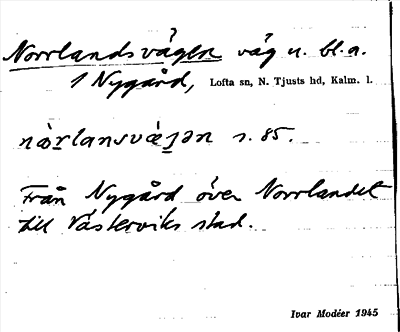 Norrlandsvägen väg u. bl.a.
1 Nygård, Lofta sn, N. Tjusts hd, Kalm. l.
nòrlansvǽɟən s. 85.
Från Nygård över Norrlandet
till Västerviks stad.
Ivar Modéer 1945